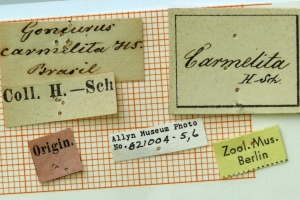 Goniurus
carmelita HS.
Brasil
Coll. H.—Sch
Carmelita
H-Sch.
Origin.
Allyn Museum Photo
No. 821004-5,6
Zool. Mus.
Berlin